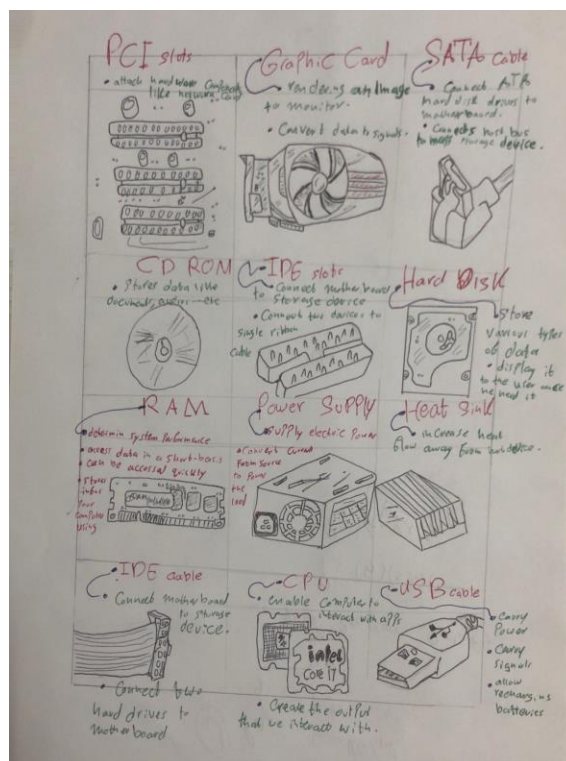 PCI slots
• attach hardware Components
like network Card
Graphic Card
• rendering an Image
to monitor.
• Convert data to signals.
SATA cable
• Connect ATA
hard disk drives to
motherboard.
• Connects host bus
to mass storage device.
CD ROM
• Stores data like
documents, etc
IDE slots
• Connect motherboard
to storage device
• Connect two devices to
single ribbon
cable
Hard DISK
• Store
various types
of data
• display it
to the user once
he need it
RAM
• determin system performance
• access data in a short-basis
• can be accessed quickly
• stores
infos
your
computer
using
Power Supply
• supply electric Power
• Convert Current
From source
to Power
the
load
Heat Sink
• increase heat
flow away from device.
IDE cable
• Connect motherboard
to storage
device.
• Connect two
hard drives to
motherboard
CPU
• enable Computer to
interact with apps
intel
Core i7
• Create the output
that we interact with.
USB cable
• Carry
Power
• Carry
signals
• allow
recharging
batteries